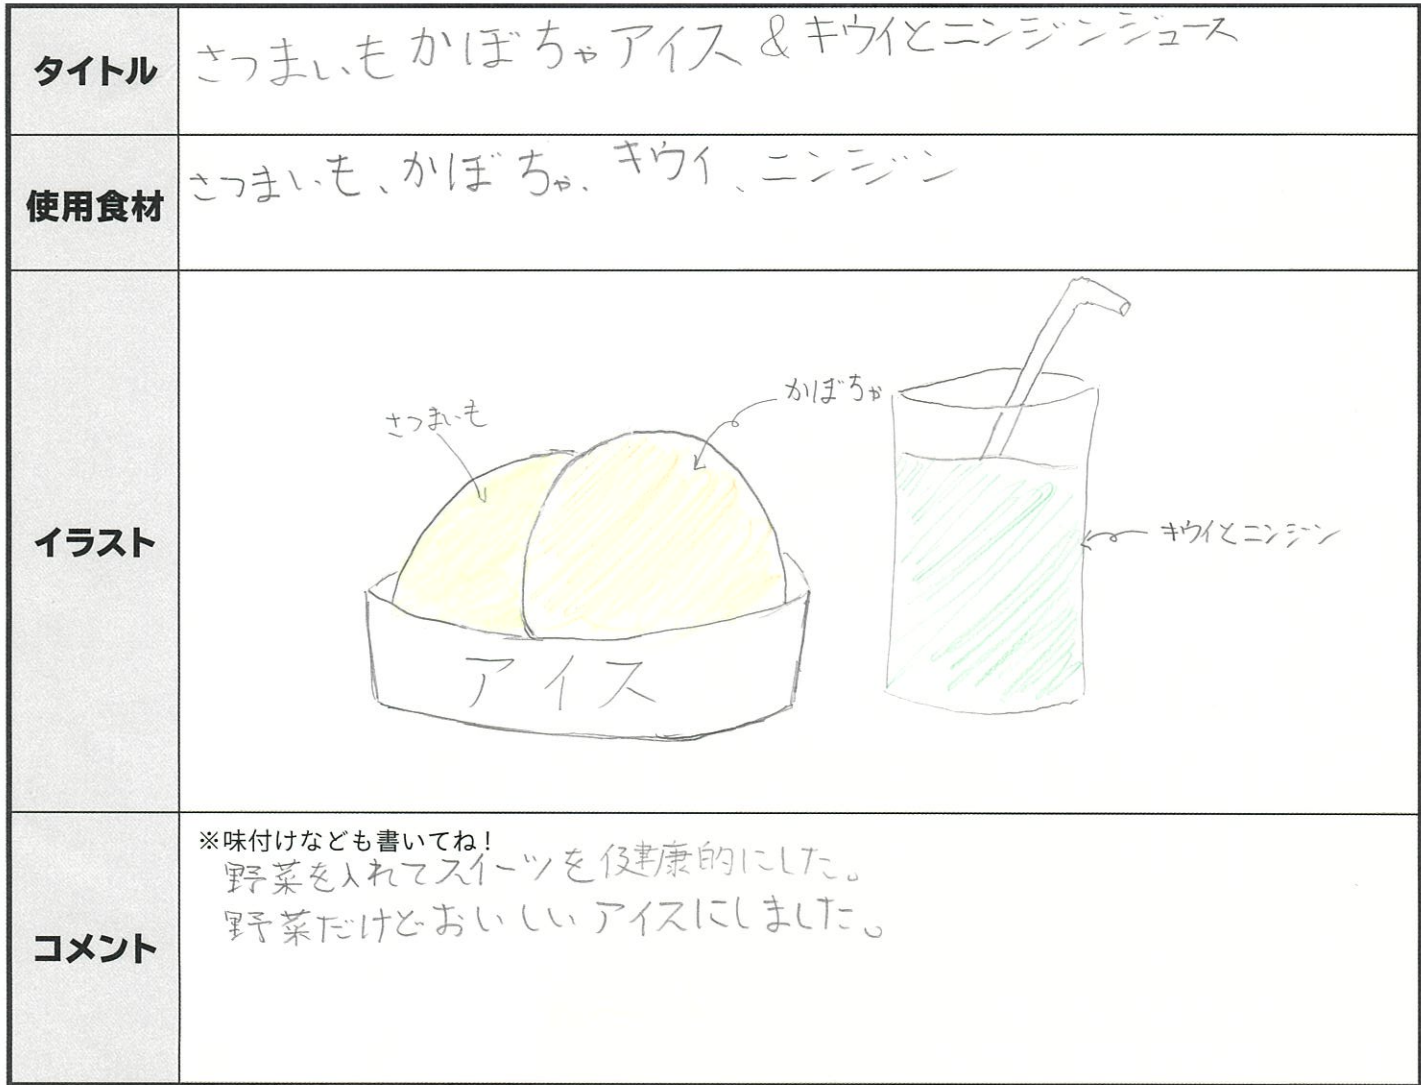 タイトル
さつまいもかぼちゃアイス&キウイとニンジンジュース
使用食材
さつまいも、かぼちゃ、キウイ、ニンジン
イラスト
さつまいも
かぼちゃ
キウイとニンジン
アイス
コメント
※味付けなども書いてね!
野菜を入れてスイーツを健康的にした。
野菜だけどおいしいアイスにしました。